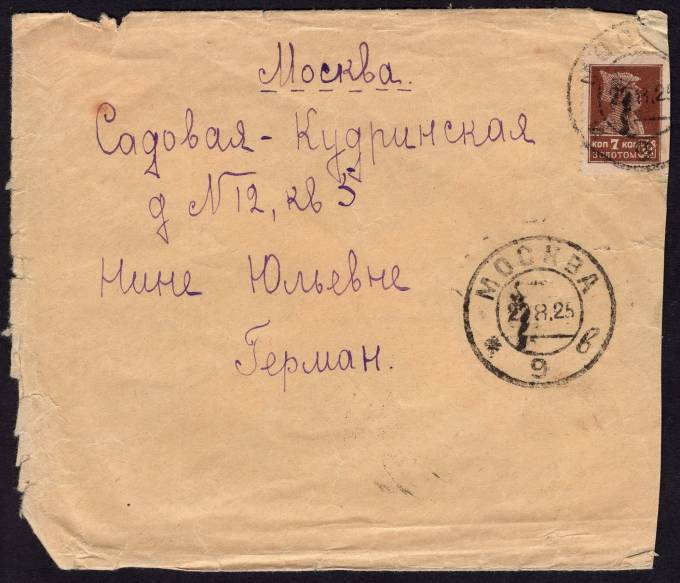 Москва.
Садовая-Кудринская
д N 12, кв 5
Нине Юльевне
Герман.
КОП 7 КОП
ЗОЛОТОМ
МОСКВА
8.25
* 9 в